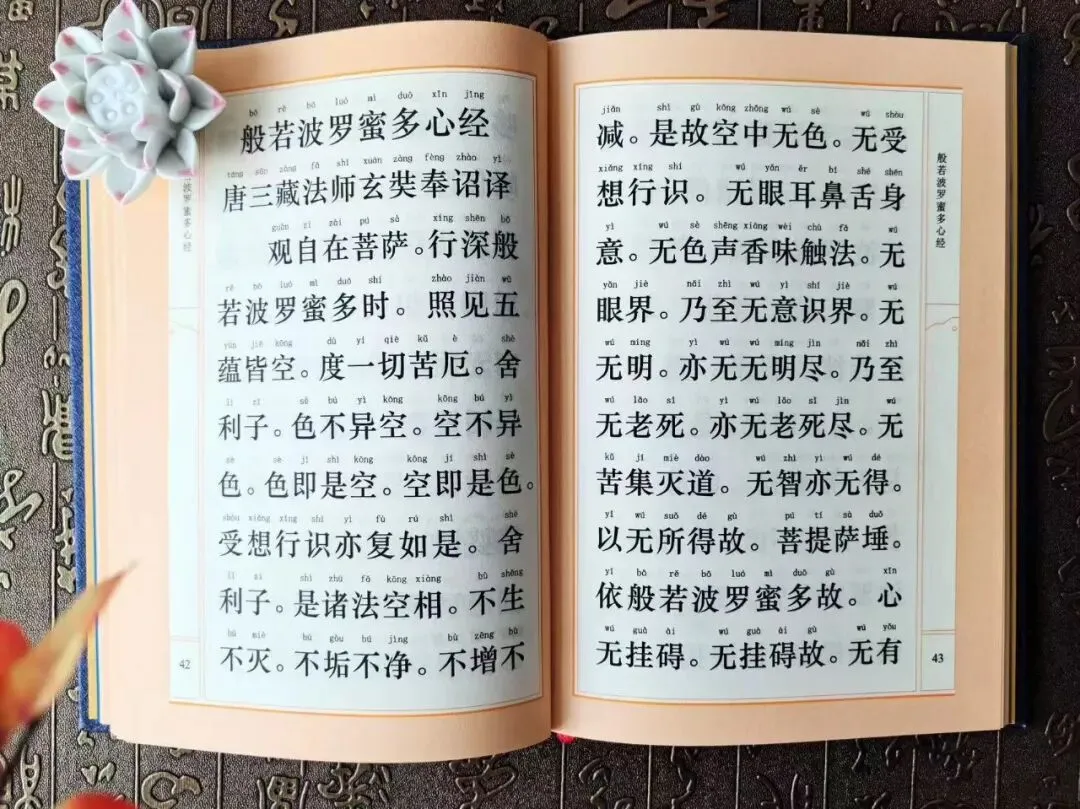 bō rě bō luó mì duō xīn jīng
般若波罗蜜多心经
táng sān zàng fǎ shī xuán zàng fèng zhào yì
唐三藏法师玄奘奉诏译
guān zì zài pú sà xíng shēn bō
观自在菩萨。行深般
rě bō luó mì duō shí zhào jiàn wǔ
若波罗蜜多时。照见五
yùn jiē kōng dù yí qiè kǔ è shè
蕴皆空。度一切苦厄。舍
lì zǐ sè bú yì kōng kōng bú yì
利子。色不异空。空不异
sè sè jí shì kōng kōng jí shì sè
色。色即是空。空即是色。
shòu xiǎng xíng shí yì fù rú shì shè
受想行识亦复如是。舍
lì zǐ shì zhū fǎ kōng xiàng bù shēng
利子。是诸法空相。不生
bú miè bú gòu bú jìng bù zēng bù
不灭。不垢不净。不增不
波罗蜜多心经
42
jiǎn shì gù kōng zhōng wú sè wú shòu
减。是故空中无色。无受
xiǎng xíng shí wú yǎn ěr bí shé shēn
想行识。无眼耳鼻舌身
yì wú sè shēng xiāng wèi chù fǎ wú
意。无色声香味触法。无
yǎn jiè nǎi zhì wú yì shí jiè wú
眼界。乃至无意识界。无
wú míng yì wú wú míng jìn nǎi zhì
无明。亦无无明尽。乃至
wú lǎo sǐ yì wú lǎo sǐ jìn wú
无老死。亦无老死尽。无
kǔ jí miè dào wú zhì yì wú dé
苦集灭道。无智亦无得。
yǐ wú suǒ dé gù pú tí sà duǒ
以无所得故。菩提萨埵。
yī bō rě bō luó mì duō gù xīn
依般若波罗蜜多故。心
wú guà ài wú guà ài gù wú yǒu
无挂碍。无挂碍故。无有
般若波罗蜜多心经
43